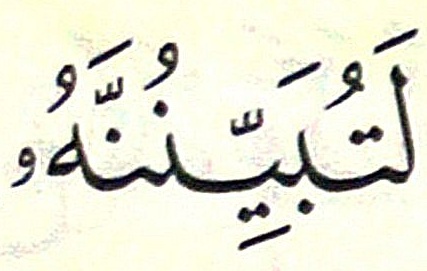 لَتُبَيِّنُنَّهُۥ